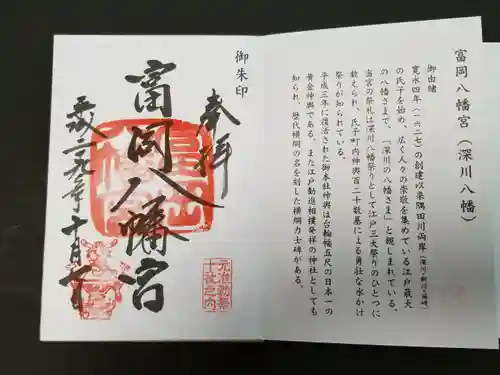 富岡八幡宮（深川八幡）
御由緒
寛永四年（一六二七）の創建以来隅田川両岸（深川・新川・箱崎）
の氏子を始め、広く人々の崇敬を集めている江戸最大
の八幡さまで、「深川の八幡さま」と親しまれている。
当宮の祭礼は深川八幡祭りとして江戸三大祭りのひとつに
数えられ、氏子町内神輿百二十数基による勇壮な水かけ
祭りが知られている。
平成三年に復活された御本社神輿は台輪幅五尺の日本一の
黄金神輿である。また江戸勧進相撲発祥の神社としても
知られ、歴代横綱の名を刻した横綱力士碑がある。
御朱印
奉拝
富岡八幡宮
平成二九年十月